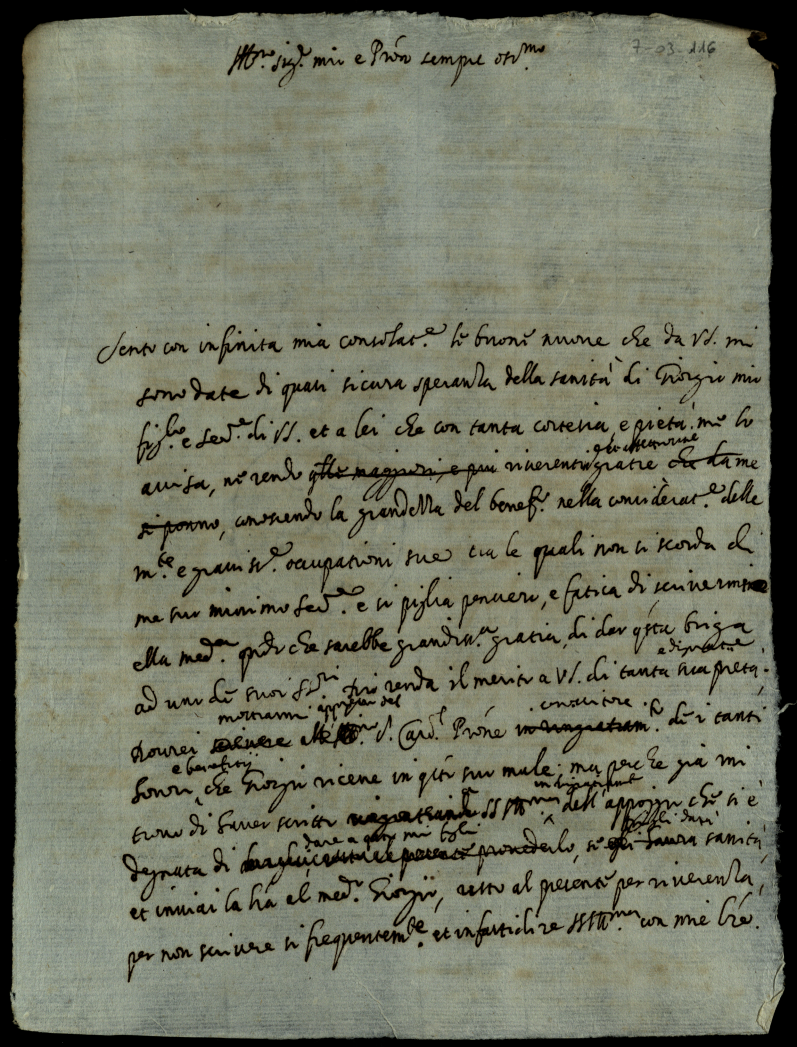 7-03-116
Ill.re sig.re mio e Pròn sempre oss.mo
Sento con infinita mia consolat.e le buone nuove che da VS. mi
sono date di quasi sicura speranza della sanità di Giorgio mio
figl.lo e ser.e di VS. et a lei che con tanta cortesia, e pietà me lo
avisa, ne rendo qlle maggiori, e piu riverenti gratie che da me
si ponno, conoscendo la grandezza del benef.o nella considerat.e delle
m.te e graviss.e occupationi sue tra le quali non si scorda di
me suo minimo ser.e e si piglia pensiero, e fatica di scrivermi
ella med.a qndo che sarebbe grandiss.a gratia, di dar qsta briga
e di pietate
ad uno de suoi S.ri Dio renda il merito a VS. di tanta sua pietà.
mostrarmi appresso del conoscitore
Dovrei scrivere all Ill.mo S.r Card.l Prone in ringratiam.to de i tanti
e beneficij
honori, che Giorgio riceve in qsto suo male; ma perche già mi
trovo di haver scritto ringratiando SS Ill.ma dell'appoggio che si è
dare a qsto mio figlio
degnata di provederlo, se sanità,
et inviai la lrã al med.o Giorgio, resto al presente per riverenza,
per non scrivere si frequentem.te et infastidire SSIll.ma con mie lre.